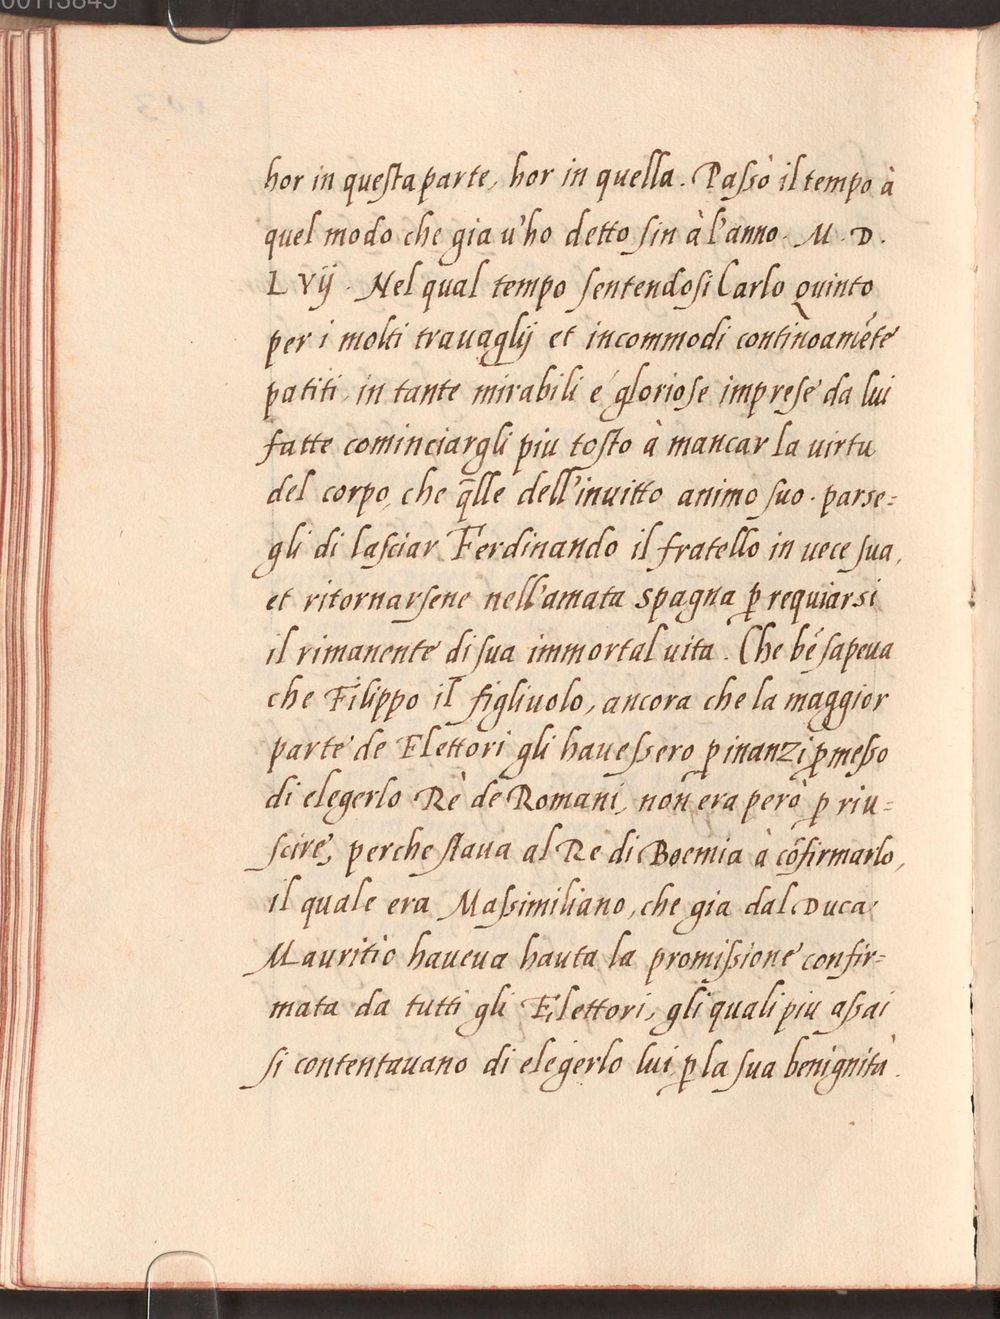 00113845
hor in questa parte, hor in quella. Passò il tempo à
quel modo che gia u'ho detto sin à l'anno. M. D.
L Vij. Nel qual tempo sentendosi Carlo Quinto
per i molti trauaglij et incommodi continoamẽte
patiti, in tante mirabili e gloriose imprese da lui
fatte cominciargli piu tosto à mancar la uirtu
del corpo, che q̃lle dell'inuitto animo suo. parse=
gli di lasciar Ferdinando il fratello in uece sua,
et ritornarsene nell'amata spagna ꝑ requiarsi
il rimanente di sua immortal uita. Che bẽ sapeua
che Filippo il figliuolo, ancora che la maggior
parte de Elettori gli hauessero ꝑ inanzi ꝓmesso
di elegerlo Rè de Romani, non era però ꝑ riu=
scire, perche staua al Re di Boemia à cõfirmarlo,
il quale era Massimiliano, che gia dal Duca
Mauritio haueua hauta la promissione confir=
mata da tutti gli Elettori, gli quali piu assai
si contentauano di elegerlo lui ꝑ la sua benignità.